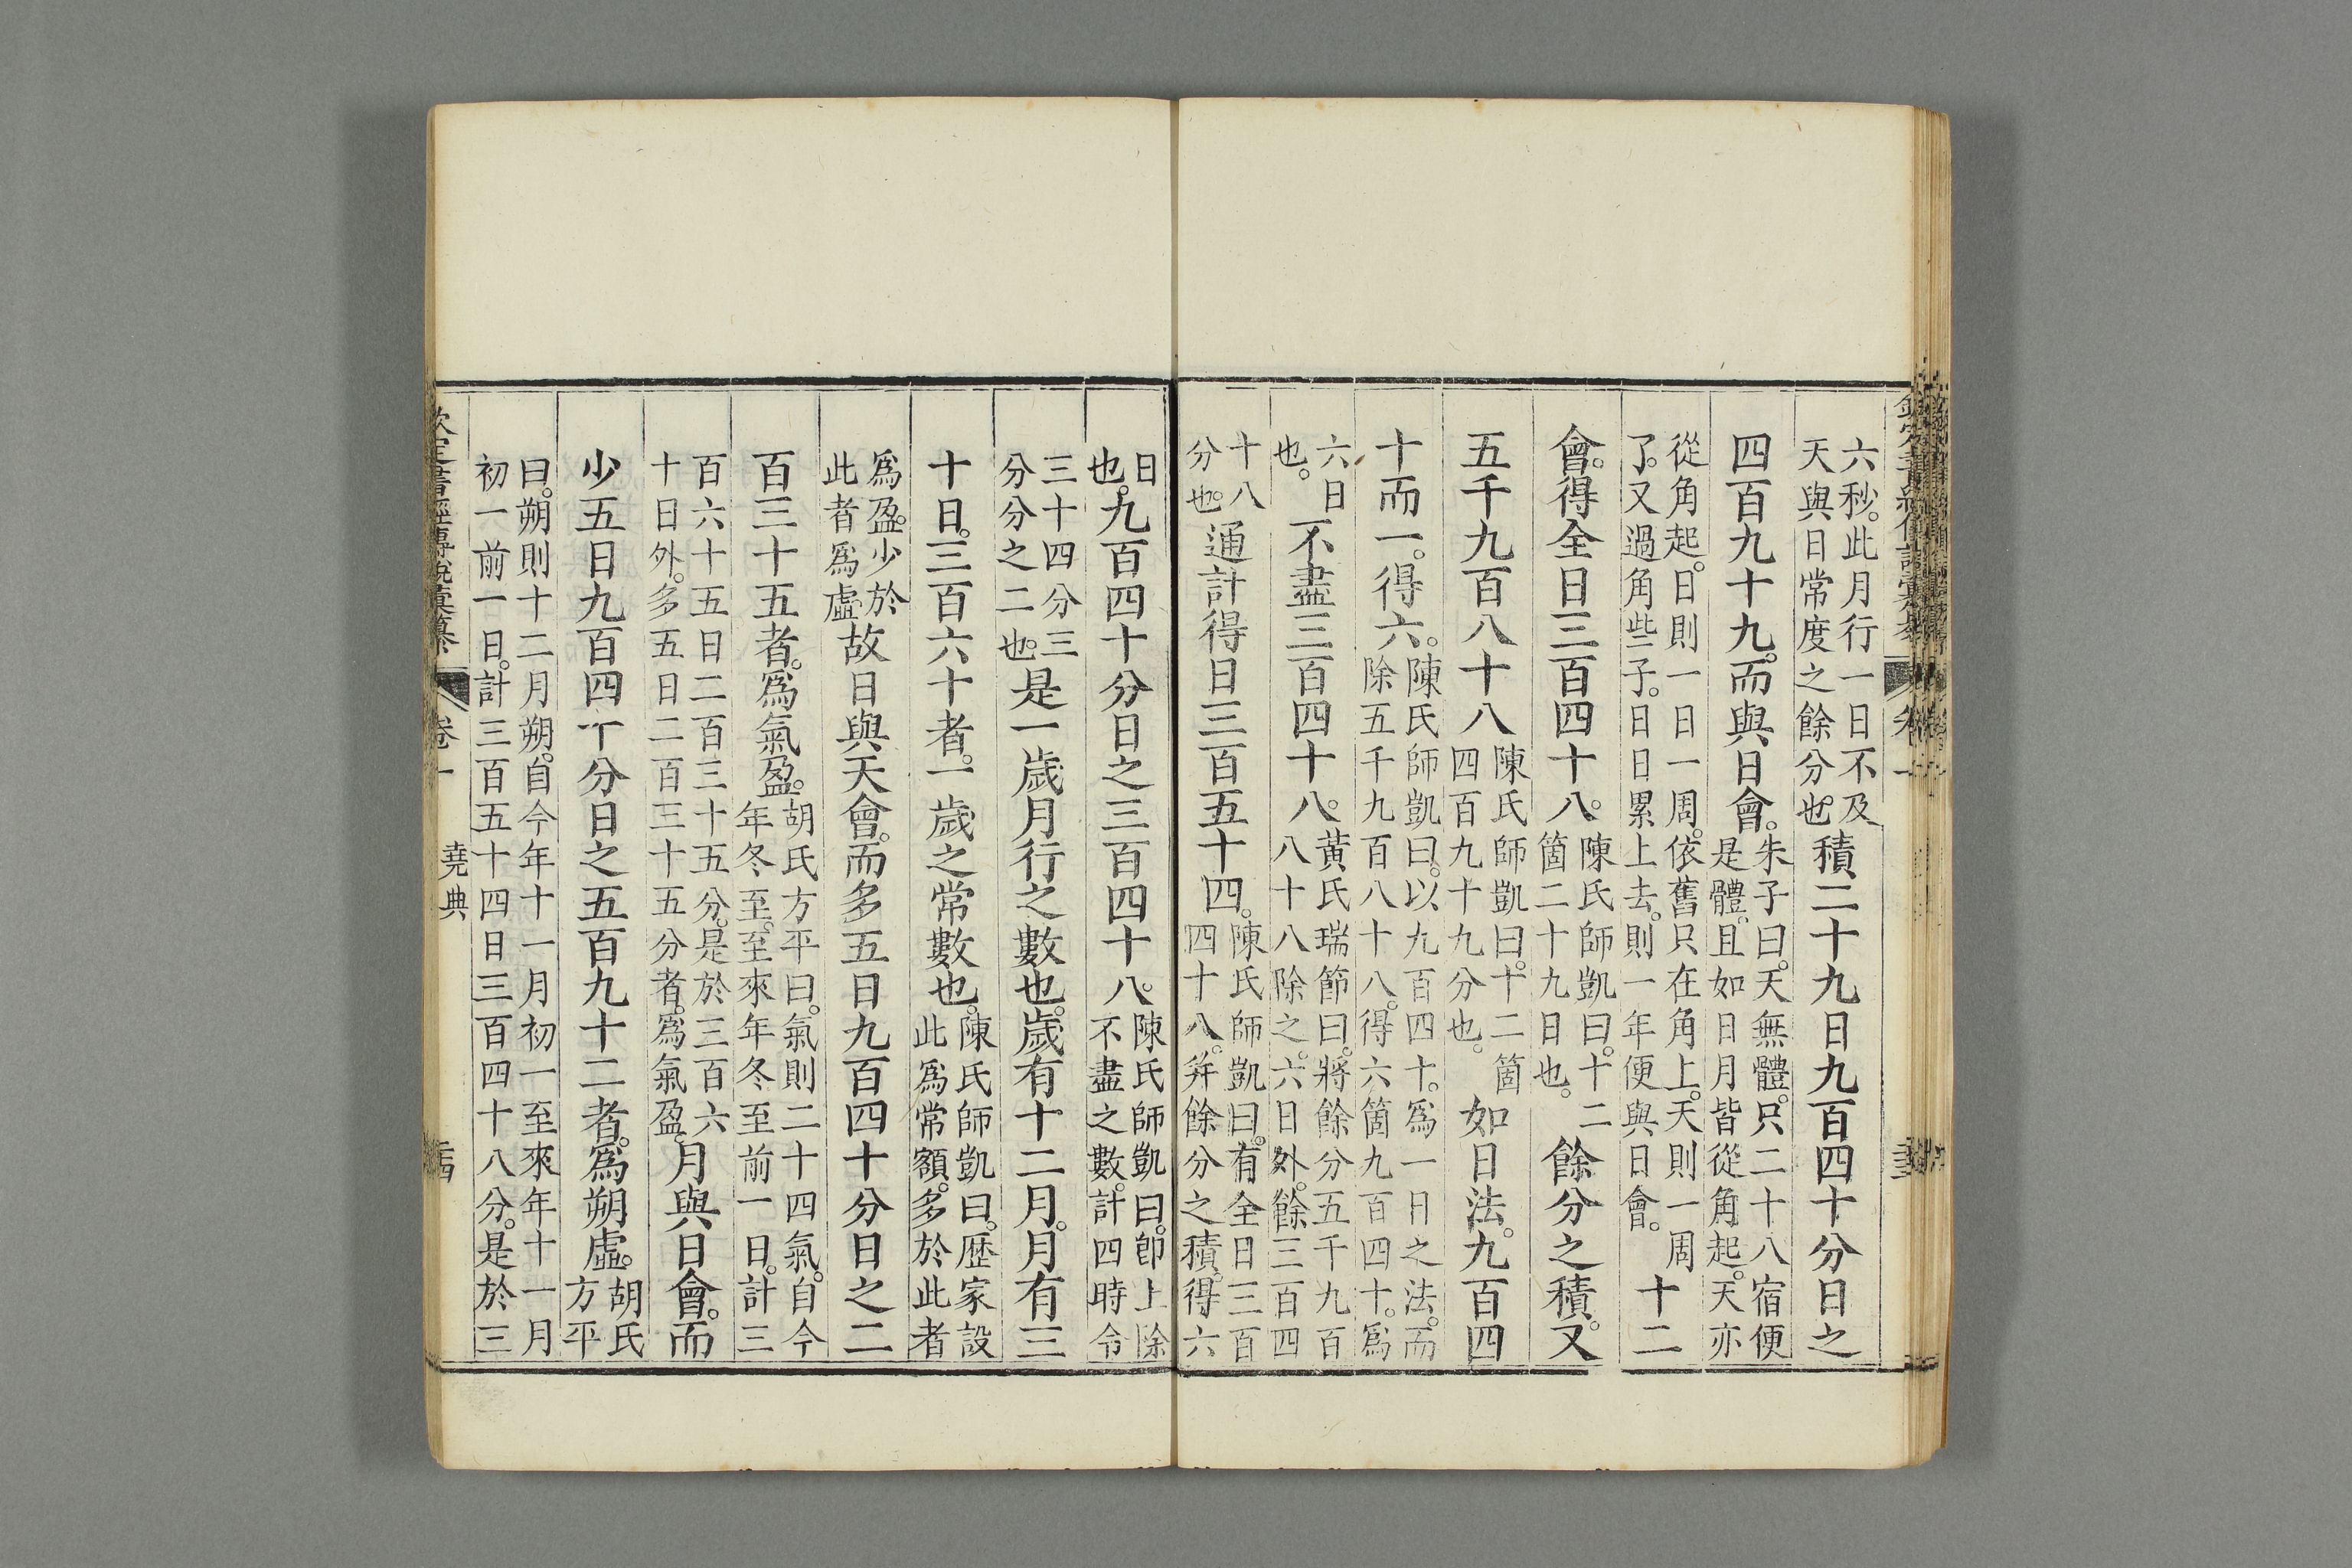 六秒。此月行一日不及
天與日常度之餘分也。
積二十九日九百四十分日之
四百九十九。而與日會。
朱子曰。天無體。只二十八宿便
是體。且如日月皆從角起。天亦
從角起。日則一日一周。依舊只在角上。天則一周
了。又過角些子。日日累上去。則一年便與日會。
十二
會。得全日三百四十八。
陳氏師凱曰。十二
箇二十九日也。
餘分之積。又
五千九百八十八
陳氏師凱曰。十二箇
四百九十九分也。
如日法。九百四
十而一。得六。
陳氏師凱曰。以九百四十。爲一日之法。而
除五千九百八十八。得六箇九百四十。爲
六日
也。
不盡三百四十八。
黃氏瑞節曰。將餘分五千九百
八十八除之。六日外。餘三百四
十八
分也。
通計得日三百五十四。
陳氏師凱曰。有全日三百
四十八。并餘分之積。得六
日
也。
九百四十分日之三百四十八。
陳氏師凱曰。卽上除
不盡之數。計四時令
三十四分三
分分之二也。
是一歲月行之數也。歲有十二月。月有三
十日。三百六十者。一歲之常數也。
陳氏師凱曰。歴家設
此爲常額。多於此者
爲盈。少於
此者爲虛
故日與天會。而多五日九百四十分日之二
百三十五者。爲氣盈。
胡氏方平曰。氣則二十四氣。自今
年冬至。至來年冬至前一日。計三
百六十五日二百三十五分。是於三百六
十日外。多五日二百三十五分者。爲氣盈。
月與日會。而
少五日九百四十分日之五百九十二者。爲朔虛。
胡氏
方平
曰。朔則十二月朔。自今年十一月初一至來年十一月
初一前一日。計三百五十四日三百四十八分。是於三
欽定書經傳說彙纂 卷一 堯典